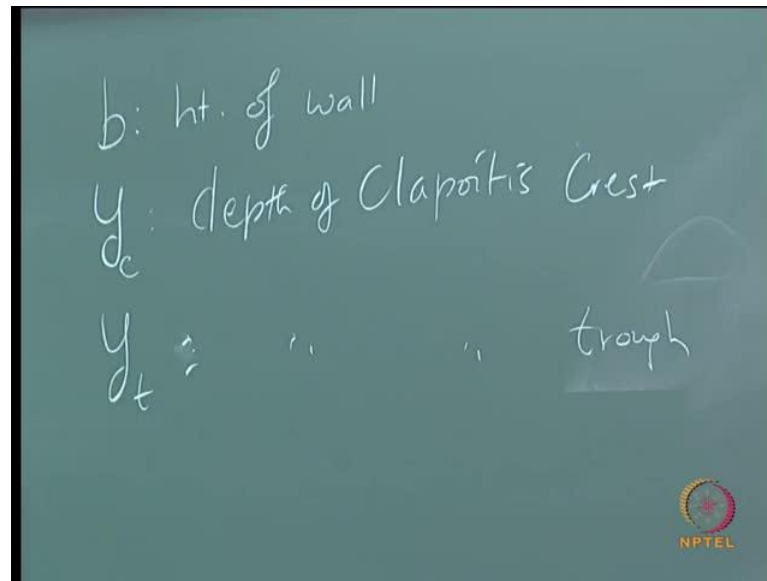 b: ht. of wall
yc: depth of Clapoitis Crest
yt: " " trough
NPTEL